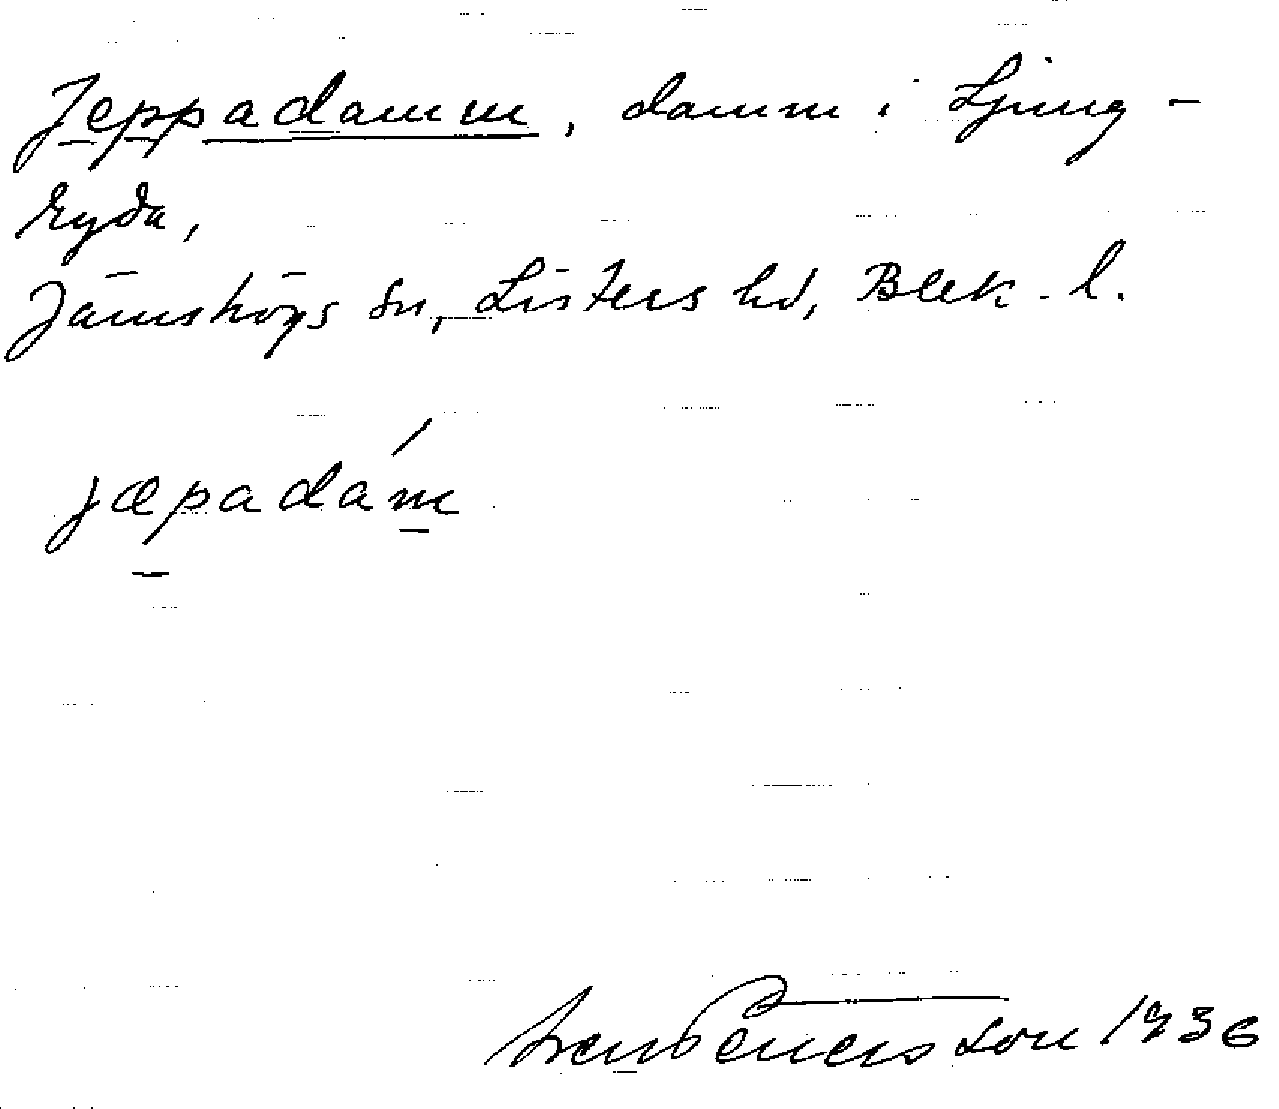 Jeppadamm, damm i Ljung-
ryda,
Jämshögs sn, Listers hd, Blek. l.
jæpadám
1936